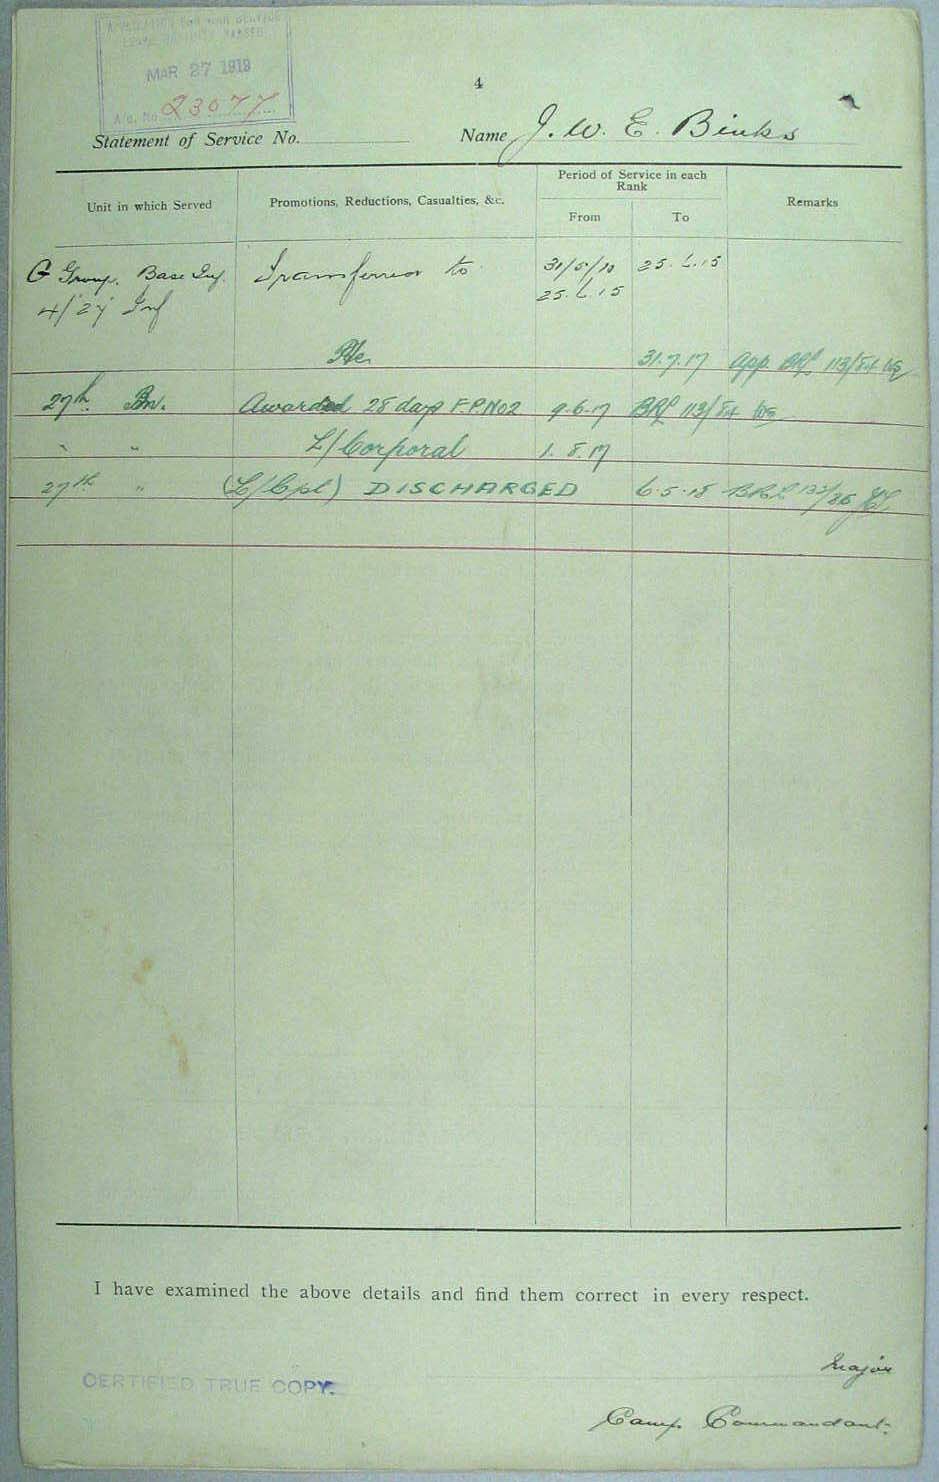 APPLICATION FOR WAR SERVICE
MAR 27 1919
A/c. No. 23077
4
Statement of Service No. Name J. W. E. Binks
Unit in which Served Promotions, Reductions, Casualties, &c. Period of Service in each Rank From To Remarks
G Group. Base Inf. Transferred to 25.6.15
4/27 Inf 25.6.15
Pte. 31.7.17 App. BRL 113/84
27th Bn. Awarded 28 days F.P. No 2 9.6.17 BRL 113/84
" " L/Corporal 1.8.17
27th " (L/Cpl) DISCHARGED 6.5.18 BRL
I have examined the above details and find them correct in every respect.
Major
CERTIFIED TRUE COPY.
Camp Commandant.